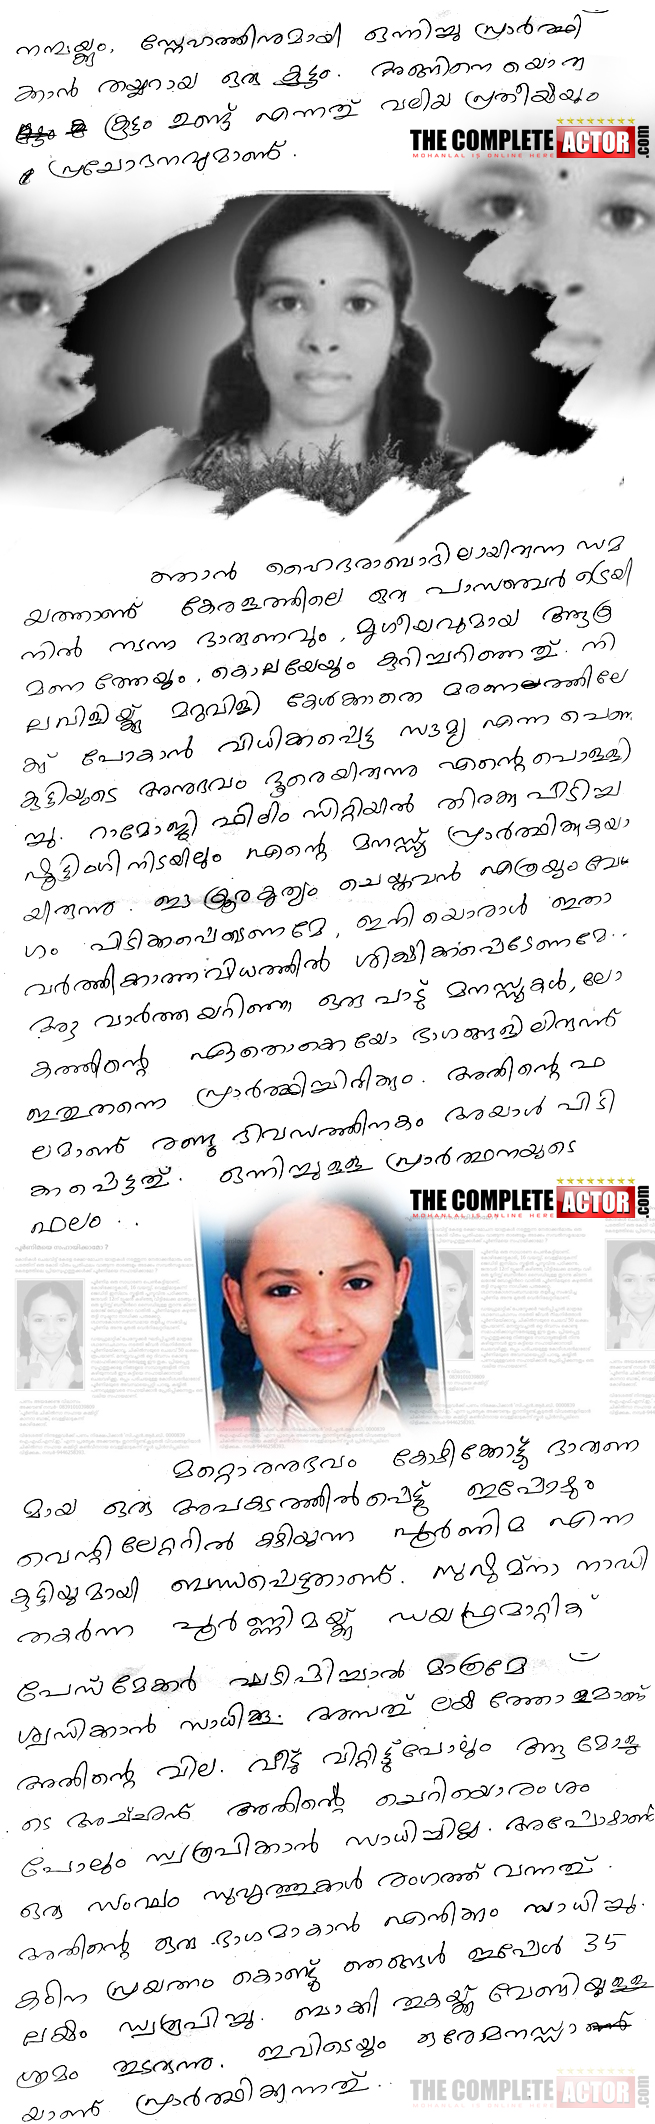 നന്മയ്ക്കും, സ്നേഹത്തിനുമായി ഒന്നിച്ചു പ്രാർത്ഥി
ക്കാൻ തയ്യാറായ ഒരു കൂട്ടം. അങ്ങിനെ യൊരു
കൂട്ടം ഉണ്ട് എന്നത് വലിയ പ്രതീക്ഷയും
പ്രചോദനവുമാണ്.
THE COMPLETE ACTOR.com
MOHANLAL IS ONLINE HERE
ഞാൻ ഹൈദരാബാദിലായിരുന്ന സമ
യത്താണ് കേരളത്തിലെ ഒരു പാസഞ്ചർ ട്രെയി
നിൽ നടന്ന ദാരുണവും, മൃഗീയവുമായ ആക്ര
മണത്തേയും, കൊലയേയും കുറിച്ചറിഞ്ഞത്. നി
ലവിളിയ്ക്ക് മറുവിളി കേൾക്കാതെ മരണത്തിലേ
ക്കു പോകാൻ വിധിക്കപ്പെട്ട സൗമ്യ എന്ന പെൺ
കുട്ടിയുടെ അനുഭവം ദൂരെയിരുന്നു എന്റെ പൊള്ളി
ച്ചു. റാമോജി ഫിലിം സിറ്റിയിൽ തിരക്കു പിടിച്ച
ഷൂട്ടിംഗിനിടയിലും എന്റെ മനസ്സ് പ്രാർത്ഥിക്കുകയാ
യിരുന്നു. ഈ ക്രൂരകൃത്യം ചെയ്തവൻ എത്രയും വേ
ഗം പിടിക്കപ്പെടണമേ, ഇനിയൊരാൾ ഇതാ
വർത്തിക്കാത്തവിധത്തിൽ ശിക്ഷിക്കപ്പെടേണമേ..
ആ വാർത്തയറിഞ്ഞ ഒരുപാട് മനസ്സുകൾ, ലോ
കത്തിന്റെ ഏതൊക്കെയോ ഭാഗങ്ങളിലിരുന്ന്
ഇതുതന്നെ പ്രാർത്ഥിച്ചിരിക്കും. അതിന്റെ ഫ
ലമാണ് രണ്ടു ദിവസത്തിനകം അയാൾ പിടി
ക്കപ്പെട്ടത്. ഒന്നിച്ചുള്ള പ്രാർത്ഥനയുടെ
ഫലം..
THE COMPLETE ACTOR.com
MOHANLAL IS ONLINE HERE
മറ്റൊരനുഭവം കോഴിക്കോട്ട് ദാരുണ
മായ ഒരു അപകടത്തിൽപ്പെട്ട് ഇപ്പോഴും
വെന്റിലേറ്ററിൽ കഴിയുന്ന പൂർണിമ എന്ന
കുട്ടിയുമായി ബന്ധപ്പെട്ടതാണ്. സുഷുമ്നാ നാഡി
തകർന്ന പൂർണ്ണിമയ്ക്ക് ഡയഫ്രമാറ്റിക്
പേസ്മേക്കർ ഘടിപ്പിച്ചാൽ മാത്രമേ
ശ്വസിക്കാൻ സാധിക്കൂ. അമ്പത് ലക്ഷത്തോളമാണ്
അതിന്റെ വില. വീട് വിറ്റിട്ട്പോലും ആ മോളു
ടെ അച്ഛന് അതിന്റെ ചെറിയൊരംശം
പോലും സ്വരൂപിക്കാൻ സാധിച്ചില്ല. അപ്പോഴാണ്
ഒരു സംഘം സുഹൃത്തുക്കൾ രംഗത്ത് വന്നത്.
അതിന്റെ ഒരു ഭാഗമാകാൻ എനിക്കും സാധിച്ചു.
കഠിന പ്രയത്നം കൊണ്ട് ഞങ്ങൾ ഇപ്പോൾ 35
ലക്ഷം സ്വരൂപിച്ചു. ബാക്കി തുകയ്ക്ക് വേണ്ടിയുള്ള
ശ്രമം തുടരുന്നു. ഇവിടെയും ഒരേമനസ്സാ
യാണ് പ്രാർത്ഥിക്കുന്നത്..
THE COMPLETE ACTOR.com
MOHANLAL IS ONLINE HERE